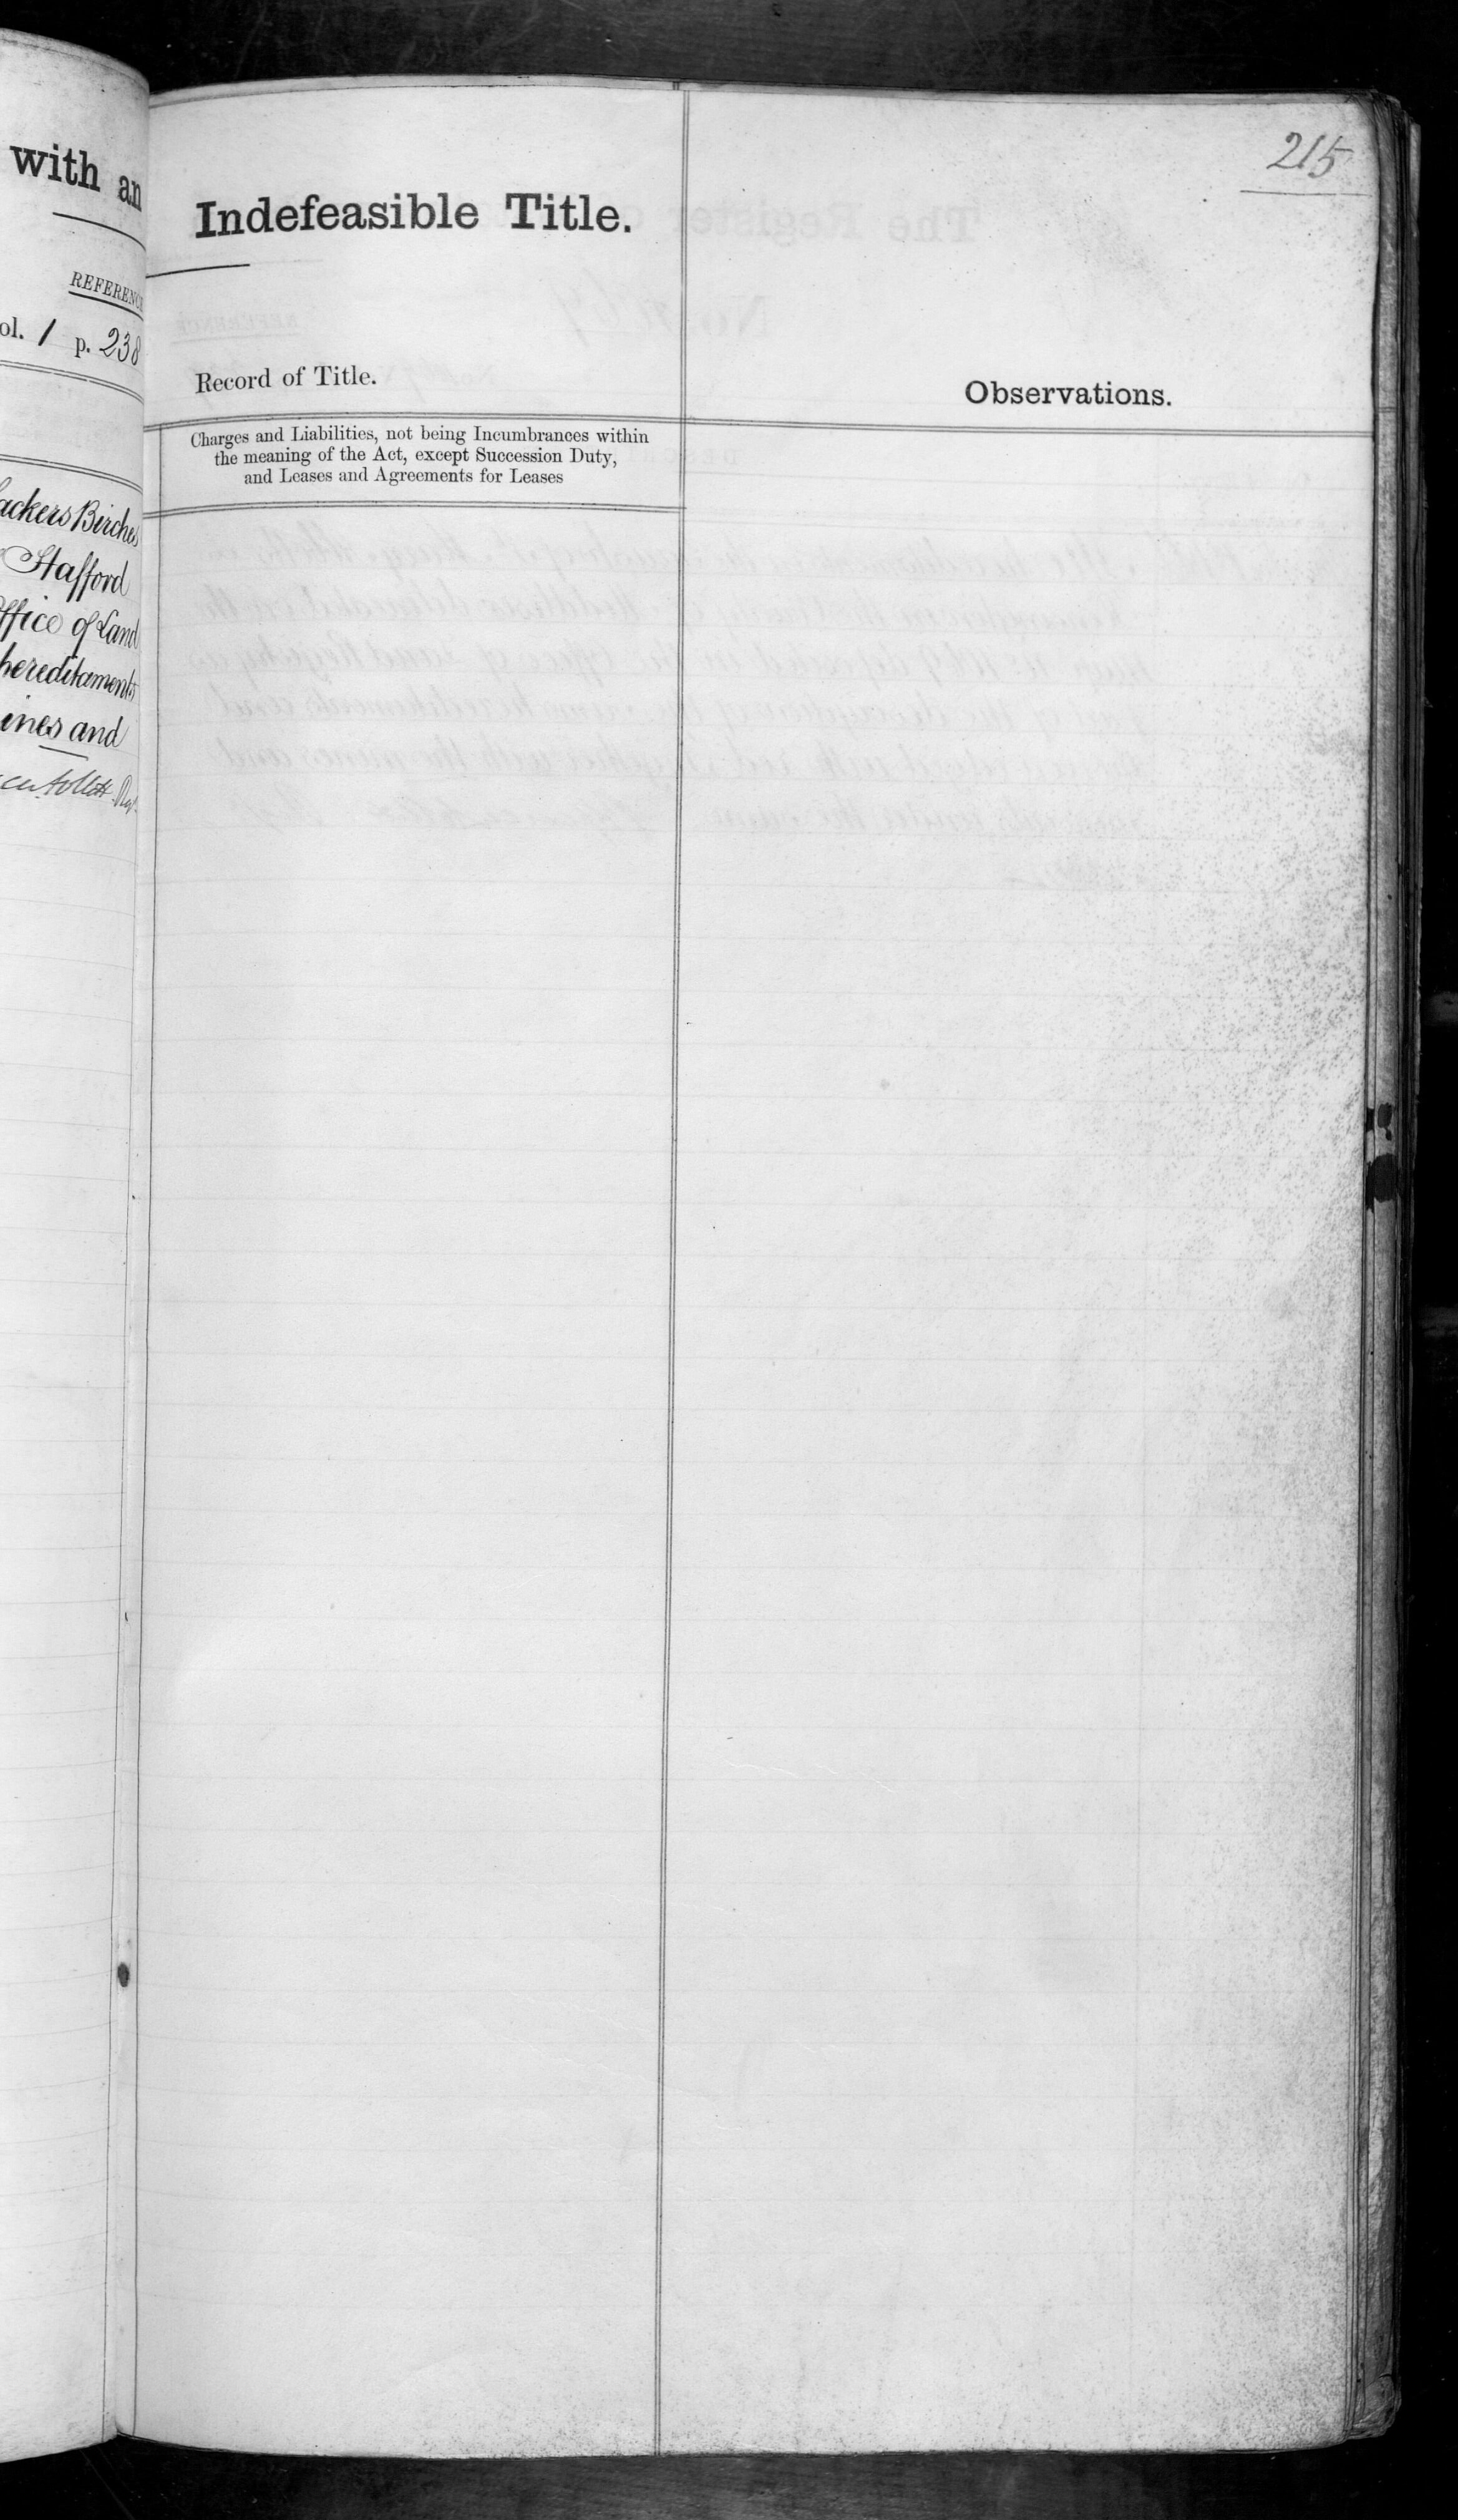 with an
REFERENC
ol. 1 p. 238
ackers Birches
Stafford
ffice of Land
hereditaments
ines and
215
Indefeasible Title.
Record of Title.
Observations.
Charges and Liabilities, not being Incumbrances within
the meaning of the Act, except Succession Duty,
and Leases and Agreements for Leases